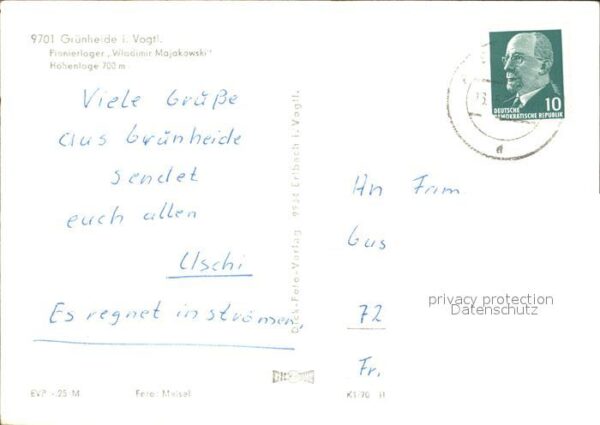 9701 Grünheide i. Vogtl.
Pionierlager „Wladimir Majakowski"
Höhenlage 700 m
Viele Grüße
aus Grünheide
sendet
euch allen
Uschi
Es regnet in strömen,
Dick-Foto-Verlag 9934 Erlbach i. Vogtl.
EVP -.25 M
Foto: Meisel
10
DEUTSCHE
DEMOKRATISCHE REPUBLIK
An Fam
Gus
72
Fr.
privacy protection
Datenschutz